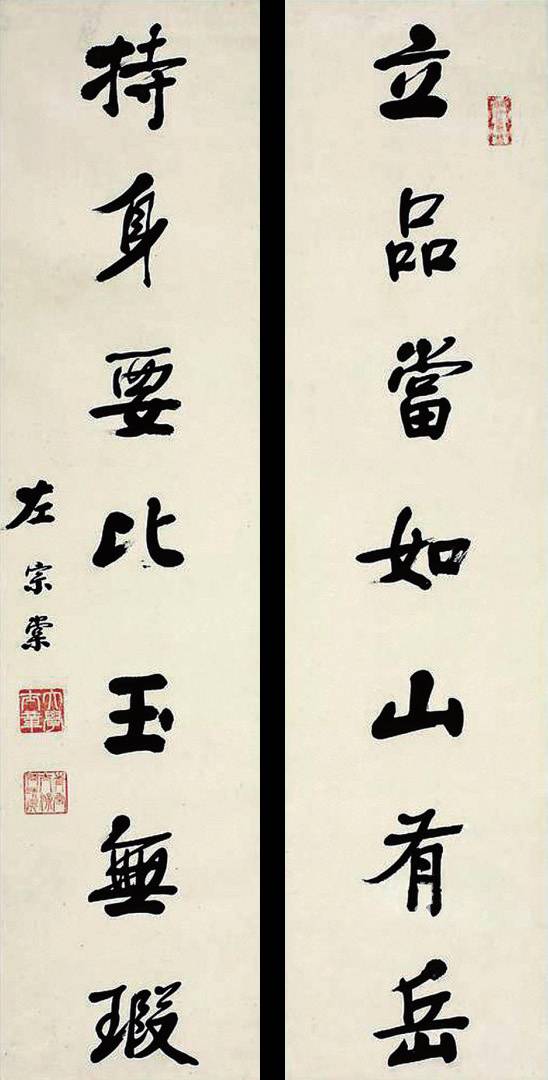 立品當如山有岳
持身要比玉無瑕
左宗棠
大學士章